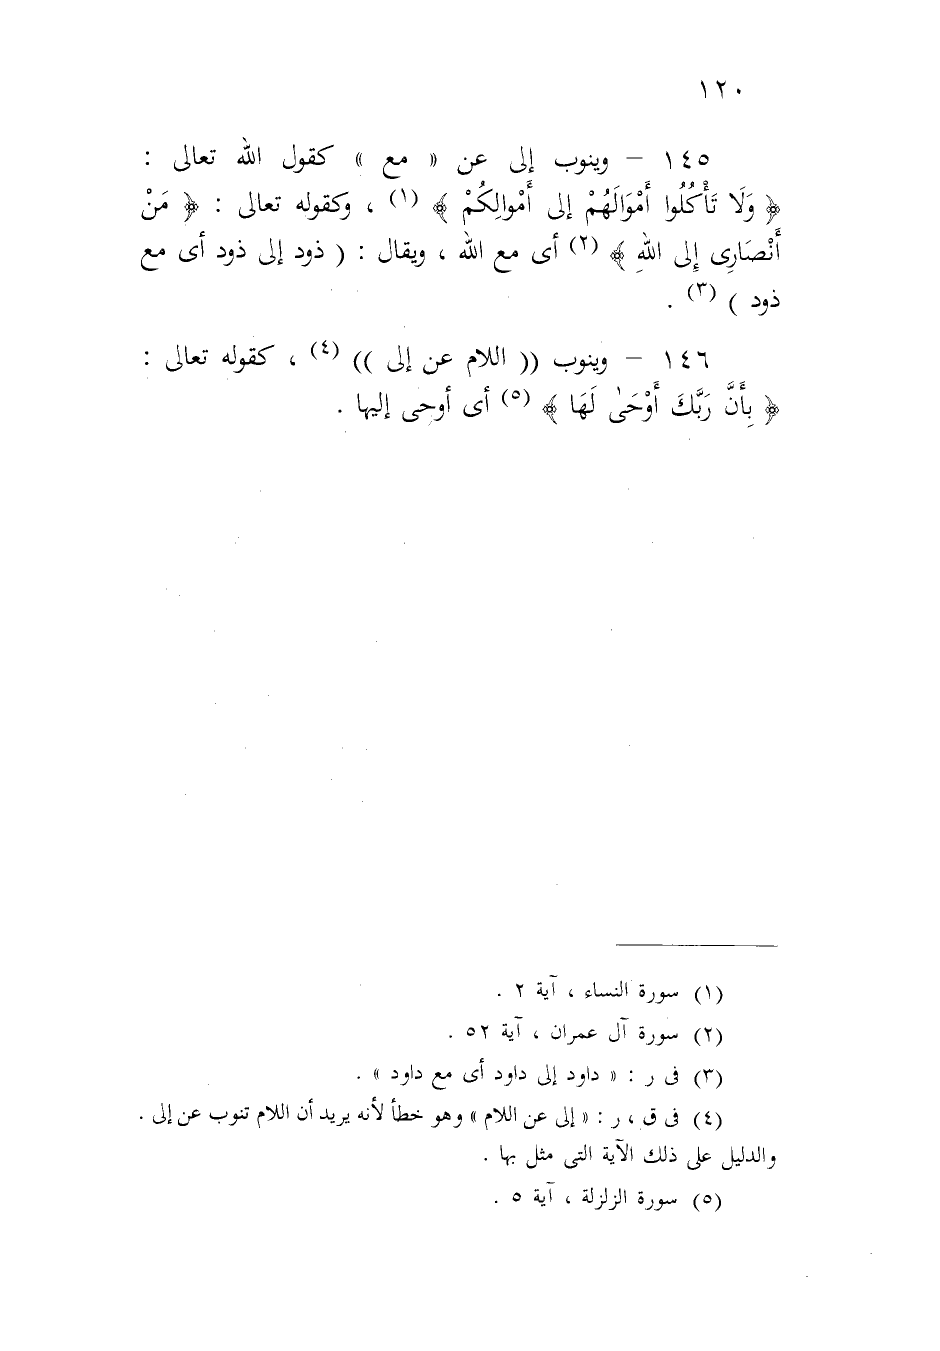 ١٢٠
١٤٥ – وينوب إلى عن « مع » كقول الله تعالى :
﴿ وَلَا تَأْكُلُوا أَمْوَالَهُمْ إلى أَمْوالِكُمْ ﴾ (١) ، وكقوله تعالى : ﴿ مَنْ
أَنْصَارِى إِلى اللهِ ﴾ (٢) أى مع الله ، ويقال : ( ذود إلى ذود أى مع
ذود ) (٣) .
١٤٦ – وينوب (( اللام عن إلى )) (٤) ، كقوله تعالى :
﴿ بِأَنَّ رَبَّكَ أَوْحَىٰ لَهَا ﴾ (٥) أى أوحى إليها .
(١) سورة النساء ، آية ٢ .
(٢) سورة آل عمران ، آية ٥٢ .
(٣) فى ر : « داود إلى داود أى مع داود » .
(٤) فى ق ، ر : « إلى عن اللام » وهو خطأ لأنه يريد أن اللام تنوب عن إلى .
والدليل على ذلك الآية التى مثل بها .
(٥) سورة الزلزلة ، آية ٥ .